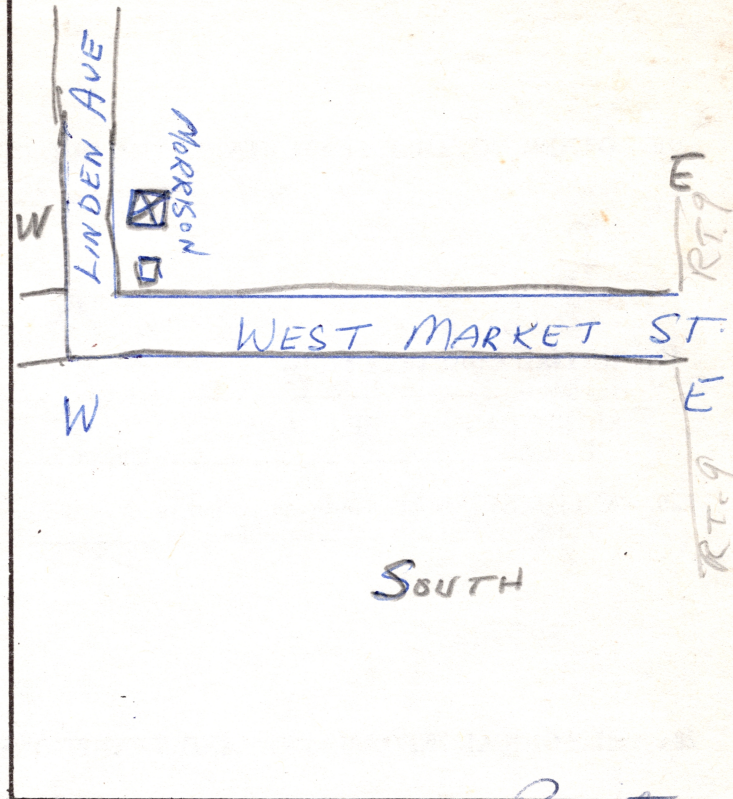 LINDEN AVE
MORRISON
W
E
RT. 9
WEST MARKET ST.
W
E
RT. 9
SOUTH